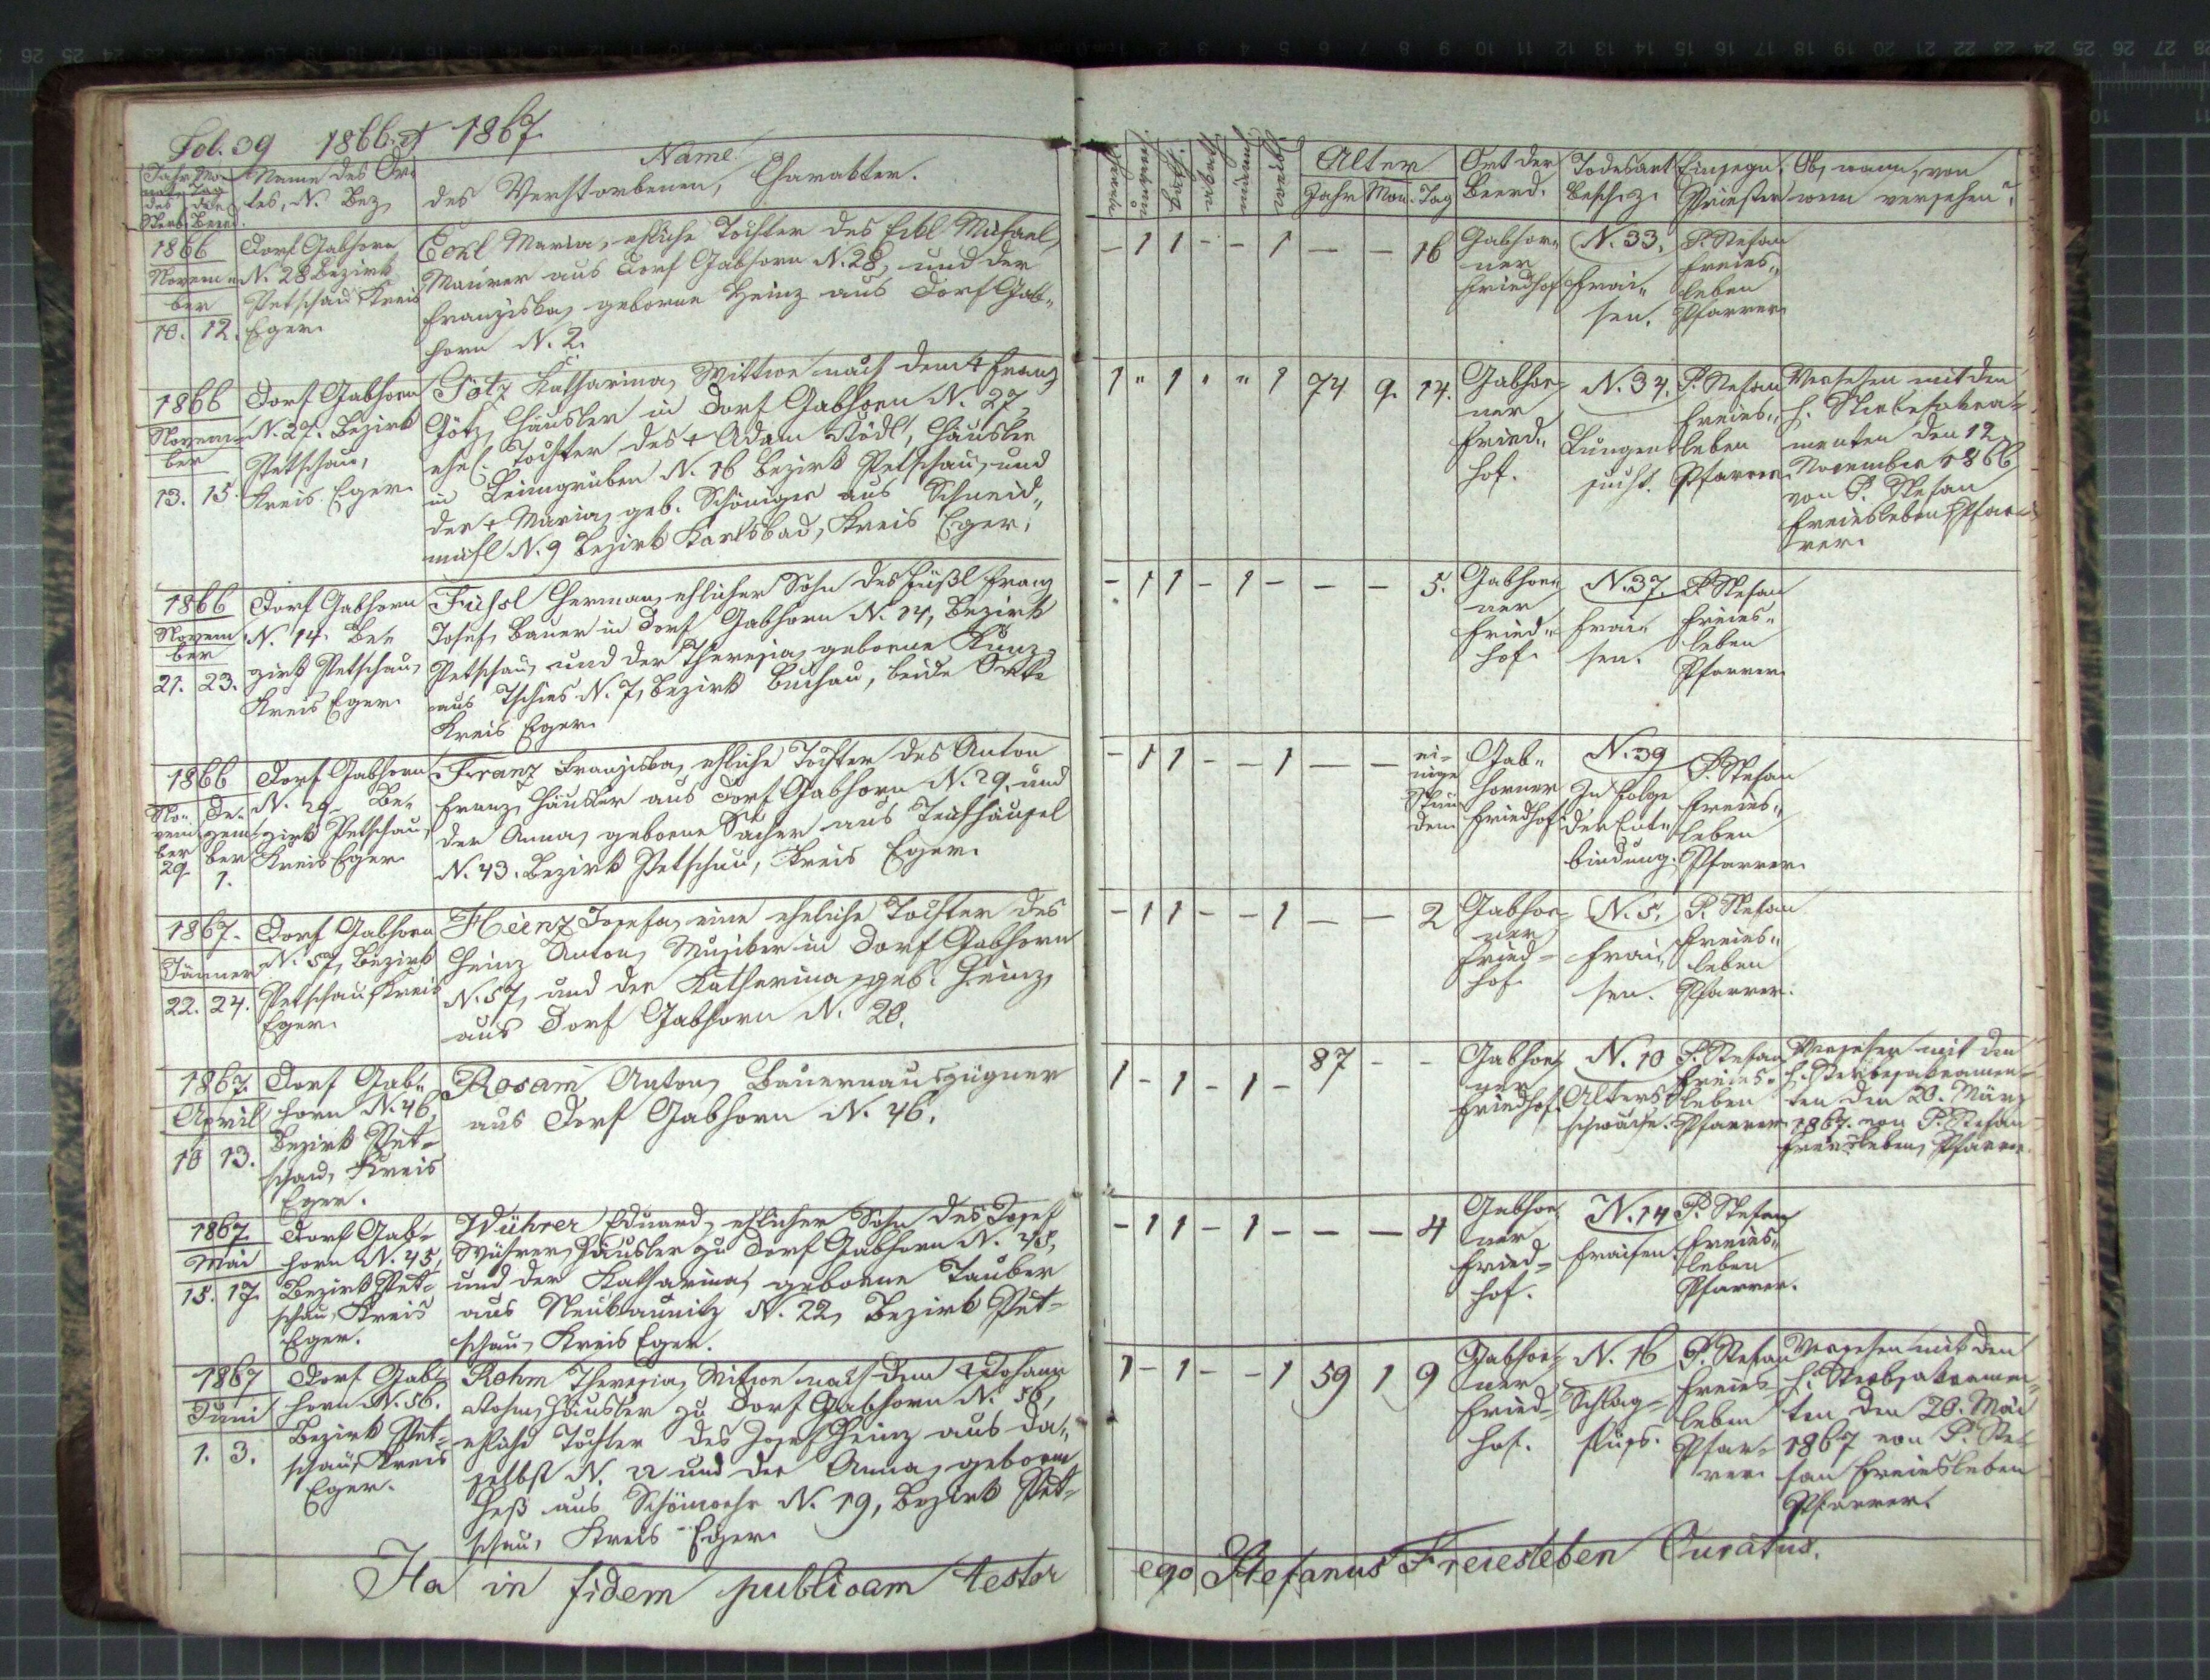 Fol. 39 1866. et 1867.
Jahr Mo-
nat, Tag
des Sterb. der Beerd.
Name des Or-
tes, N. Bez.
Name
des Verstorbenen, Charakter.
Alter
Jahr Mon. Tag
Ort der
Beerd.
Todesart
Besch. z.
Einsegn.
Priester
Ob, wann, von
wem versehen?
1866
Novem-
ber
10. 12.
Dorf Gabhorn
N. 28 Bezirk
Petschau Kreis
Eger.
Eckl Maria, ehliche Tochter des Eckl Michael,
Maurer aus Dorf Gabhorn N. 28, und der
Franziska, geborne Heinz aus Dorf Gab-
horn N. 2.
- 1 1 - - 1 - - 16
Gabhor-
ner
Friedhof
N. 33.
Frai-
sen.
P. Stefan
Freies-
leben
Pfarrer.
1866
Novem-
ber
13. 15.
Dorf Gabhorn
N. 27. Bezirk
Petschau,
Kreis Eger.
Götz Katharina, Wittwe nach dem + Franz
Götz, Häusler in Dorf Gabhorn N. 27,
ehel. Tochter des + Adam Rödl, Häusler
in Leimgruben N. 16 Bezirk Petschau, und
der + Maria, geb. Schöniger aus Schneid-
mühl N. 9 Bezirk Karlsbad, Kreis Eger.
1 " 1 " " 1 74 9. 14.
Gabhor-
ner
Fried-
hof.
N. 34.
Lungen-
sucht.
P. Stefan
Freies-
leben
Pfarrer.
Versehen mit den
h. Sterbesakra-
menten den 12.
November 1866
von P. Stefan
Freiesleben Pfar-
rer.
1866
Novem
ber
21. 23.
Dorf Gabhorn
N. 14. Be-
zirk Petschau,
Kreis Eger.
Füssl Herman, ehlicher Sohn des Füßl Franz
Josef, Bauer in Dorf Gabhorn N. 14, Bezirk
Petschau, und der Theresia, geborne Kunz,
aus Tschies N. 7, Bezirk Buchau, beide Orte
Kreis Eger.
- 1 1 - 1 - - - 5.
Gabhor-
ner
Fried-
hof.
N. 37.
Frai-
sen.
P. Stefan
Freies-
leben
Pfarrer.
1866
No-
vem-
ber
29.
De-
zem-
ber
1.
Dorf Gabhorn
N. 29. Be-
zirk Petschau,
Kreis Eger.
Franz Franziska, ehliche Tochter des Anton
Franz, Häusler aus Dorf Gabhorn N. 29. und
der Anna, geborne Sacher aus
N. 43. Bezirk Petschau, Kreis Eger.
- 1 1 - - 1 - - ei-
nige
Stun-
den
Gab-
horner
Friedhof.
N. 39
In Folge
der Ent-
bindung.
P. Stefan
Freies-
leben
Pfarrer.
1867.
Jänner
22. 24.
Dorf Gabhorn
N. 57, Bezirk
Petschau, Kreis
Eger.
Heinz Josefa, eine eheliche Tochter des
Heinz Anton, Musiker in Dorf Gabhorn
N. 57, und der Katherina, geb. Heinz,
aus Dorf Gabhorn N. 20.
- 1 1 - - 1 - - 2
Gabhor-
ner
Fried-
hof.
N. 5.
Frai-
sen.
P. Stefan
Freies-
leben
Pfarrer.
1867.
April
10 13.
Dorf Gab-
horn N. 46,
Bezirk Pet-
schau, Kreis
Eger.
Rosam Anton, Bauernauszügner
aus Dorf Gabhorn N. 46.
1 - 1 - 1 - 87 - -
Gabhor-
ner
Friedhof.
N. 10
Alters-
schwäche.
P. Stefan
Freies-
leben
Pfarrer.
Versehen mit den
h. Sterbesakramen-
ten den 20. März
1867. von P. Stefan
Freiesleben, Pfarrer.
1867.
Mai
15. 17.
Dorf Gab-
horn N. 45,
Bezirk Pet-
schau, Kreis
Eger.
Wührer Eduard, ehlicher Sohn des Josef
Wührer, Häusler zu Dorf Gabhorn N. 45,
und der Katharina, geborne Tauber
aus Neukaunitz N. 22, Bezirk Pet-
schau, Kreis Eger.
- 1 1 - 1 - - - 4
Gabhor-
ner
Fried-
hof.
N. 14
Fraisen.
P. Stefan
Freies-
leben
Pfarrer.
1867
Juni
1. 3.
Dorf Gab-
horn N. 56.
Bezirk Pet-
schau, Kreis
Eger.
Rohm Theresia, Witwe nach dem + Johann
Rohm, Häusler zu Dorf Gabhorn N. 56,
ehliche Tochter des Josef Heinz aus da-
selbst N. 22 und der Anna, geborne
Heß aus Schönwehr N. 19, Bezirk Pet-
schau, Kreis Eger.
1 - 1 - - 1 59 1 9
Gabhor-
ner
Fried-
hof.
N. 16
Schlag-
fluß.
P. Stefan
Freies-
leben
Pfar-
rer.
Versehen mit den
h. Sterbsakramen-
ten den 20. Mai
1867 von P. Ste-
fan Freiesleben
Pfarrer.
Ita in fidem publicam testor
ego Stefanus Freiesleben Curatus.